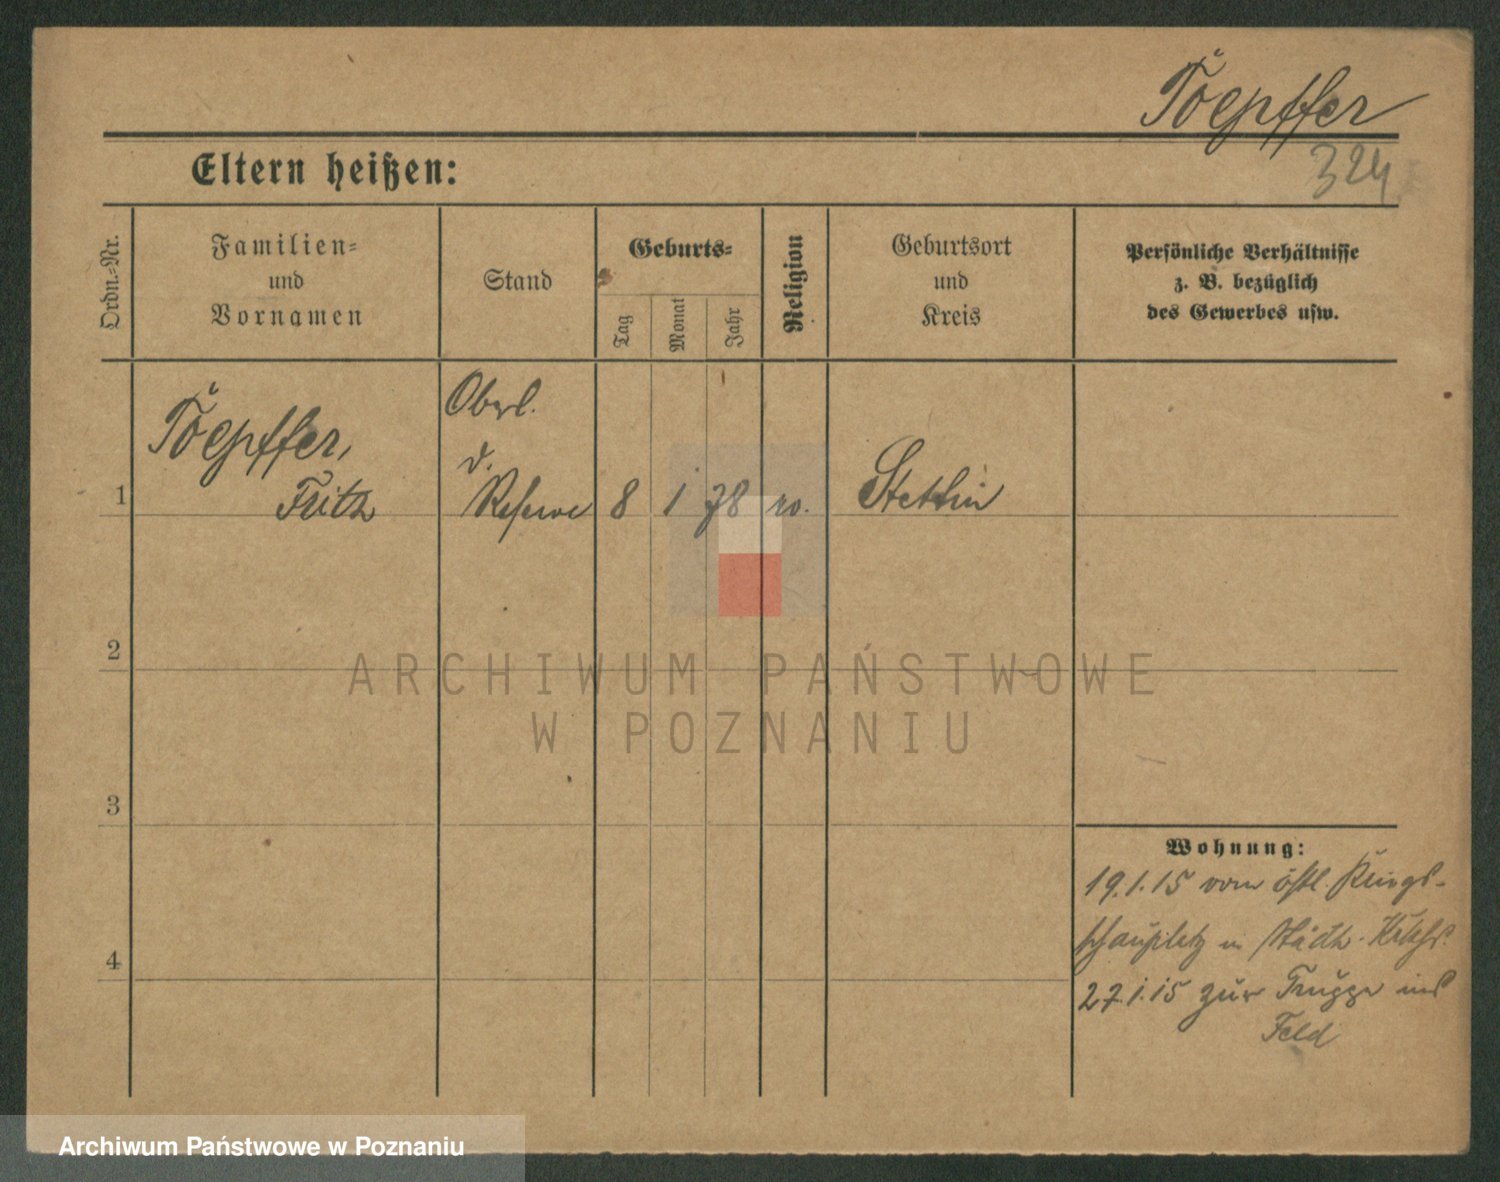 Toepffer
324
Eltern heißen:
Ordn.-Nr.
Familien-
und
Vornamen
Stand
Geburts-
Tag
Monat
Jahr
Religion
Geburtsort
und
Kreis
Persönliche Verhältnisse
z. B. bezüglich
des Gewerbes usw.
1
Toepffer,
Fritz
Oberl.
d.
Reserve
8
1
78
ev.
Stettin
2
3
4
Wohnung:
19.1.15 vom östl. Kriegs-
schauplatz in städt.
27.1.15 zur Truppe ins
Feld
ARCHIWUM PAŃSTWOWE
W POZNANIU
Archiwum Państwowe w Poznaniu